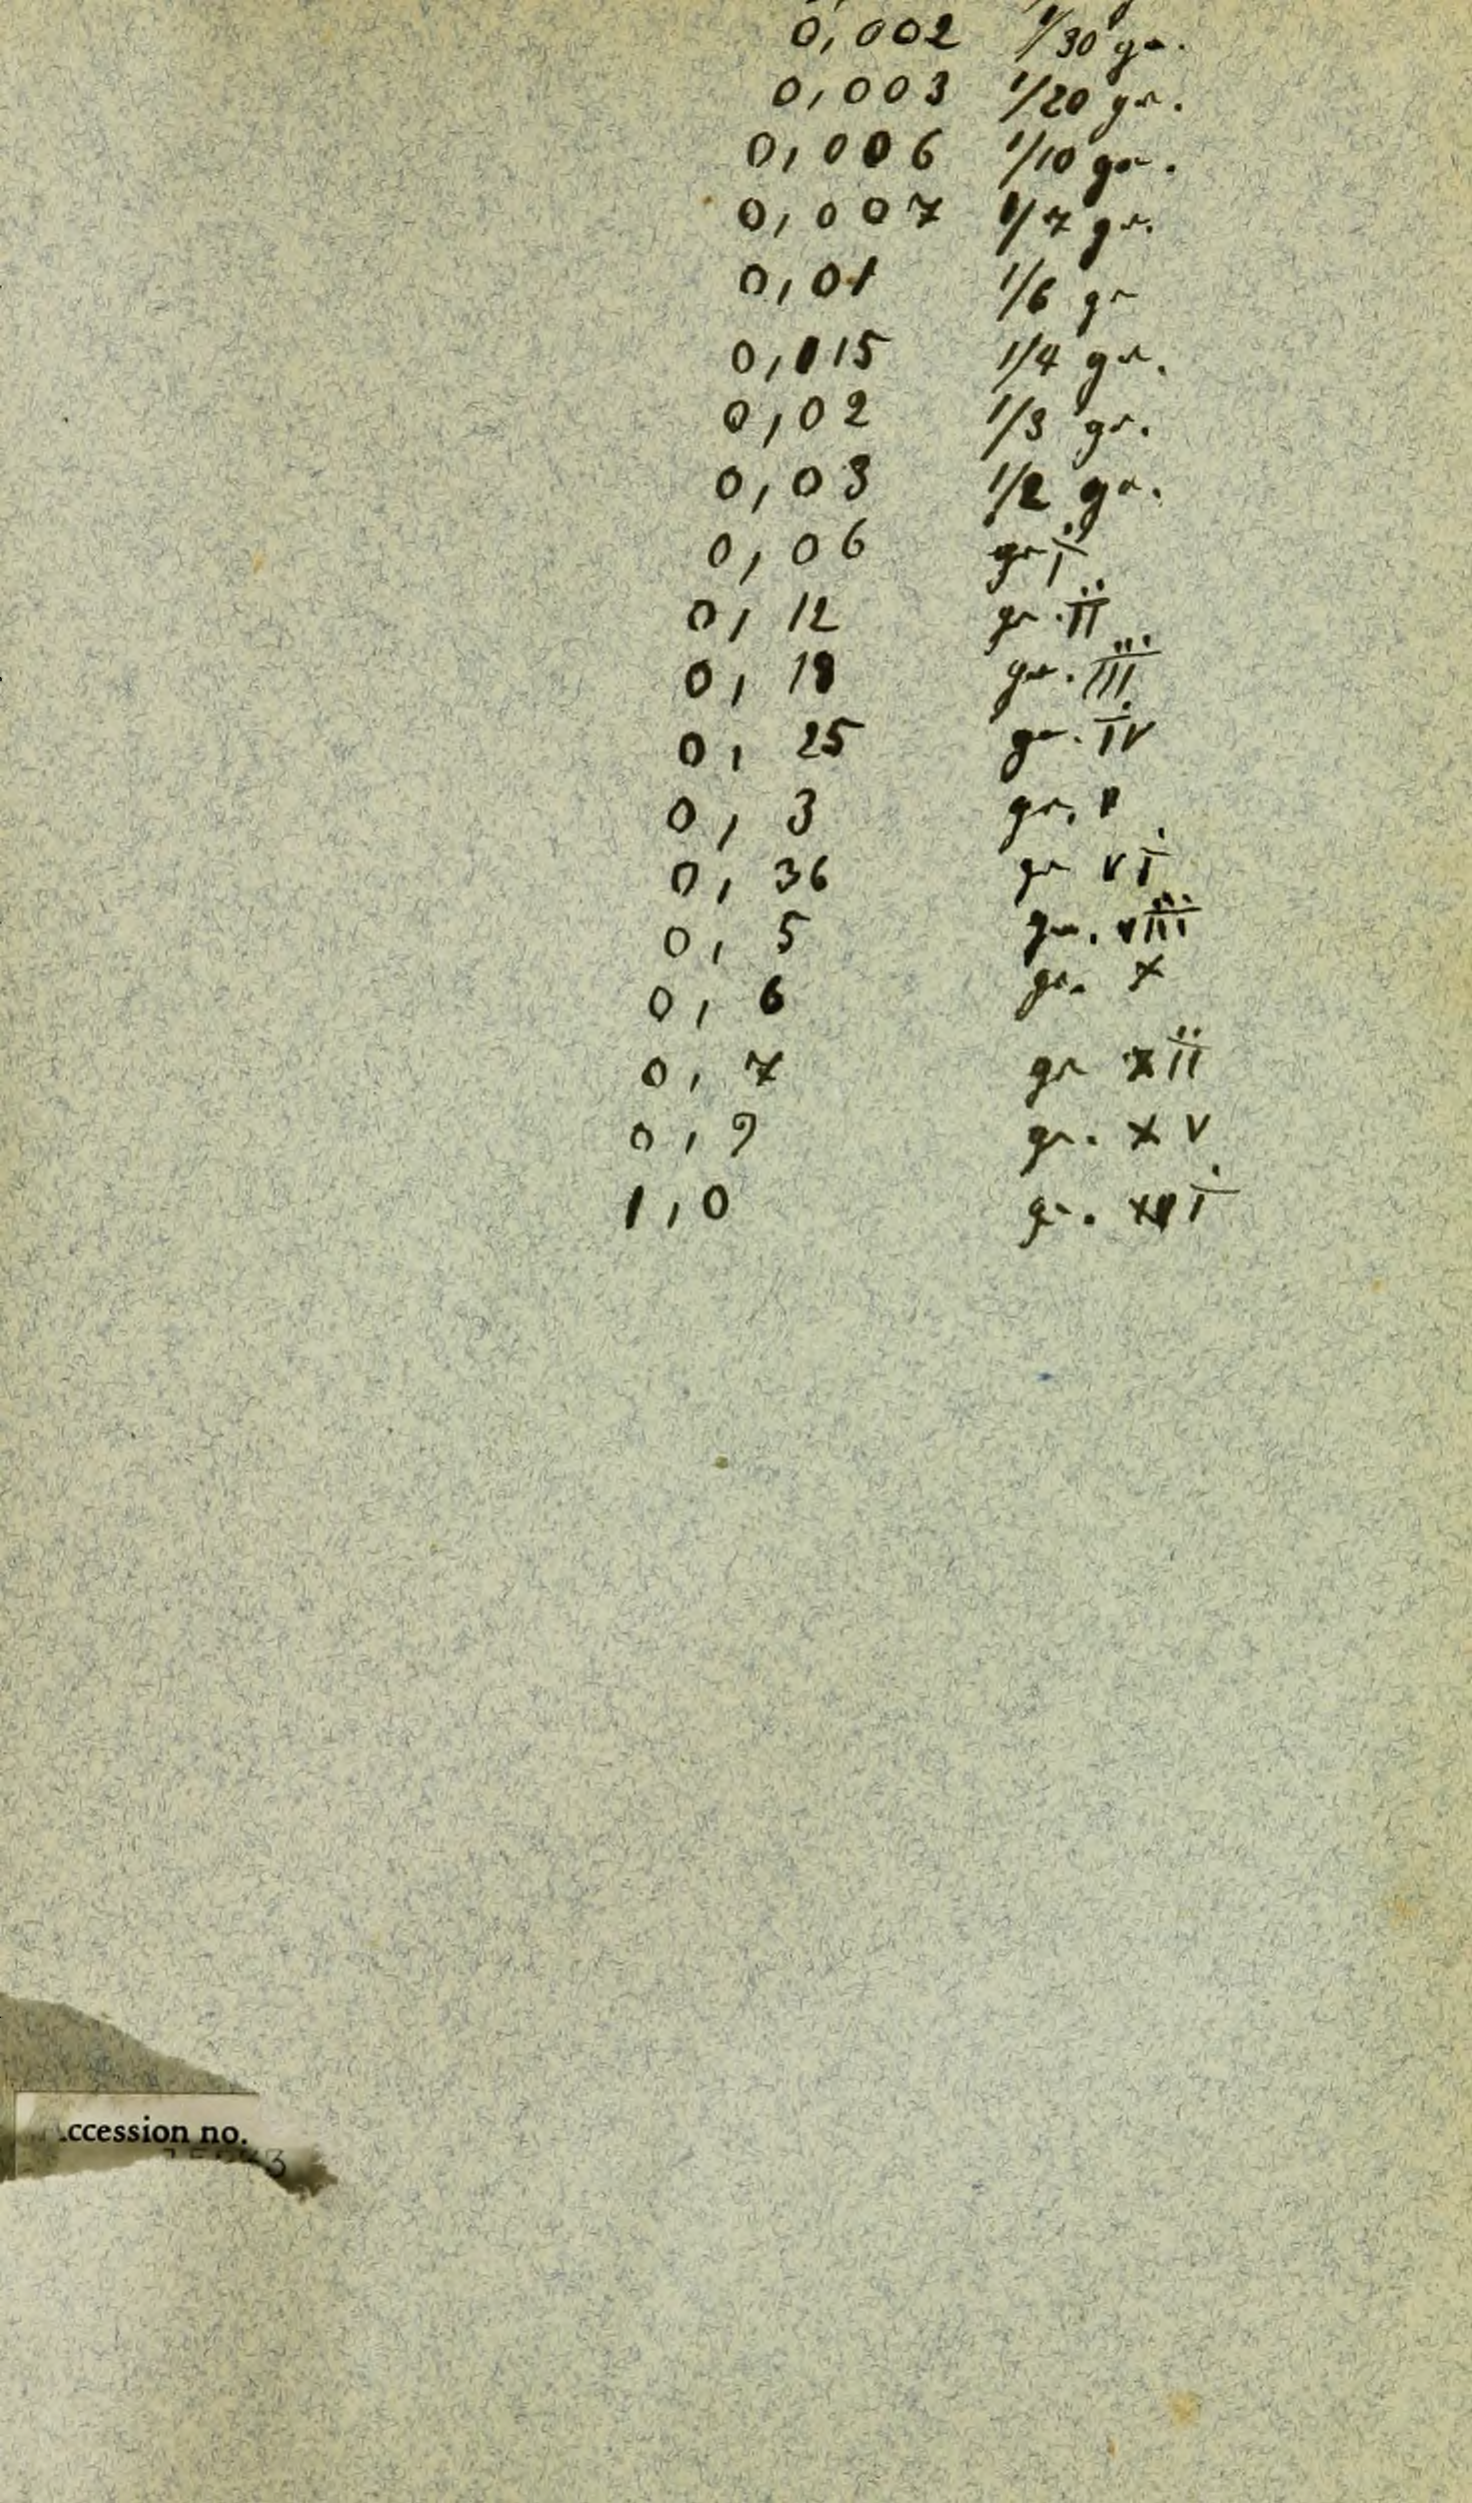 0,002 1/30 gr.
0,003 1/20 gr.
0,006 1/10 gr.
0,007 1/7 gr.
0,01 1/6 gr
0,015 1/4 gr.
0,02 1/3 gr.
0,03 1/2 gr.
0,06 gr i
0,12 gr. ii
0,18 gr. iii
0,25 gr. iv
0,3 gr. v
0,36 gr vi
0,5 gr. viii
0,6 gr. x
0,7 gr xii
0,9 gr. xv
1,0 gr. xvi
ccession no.